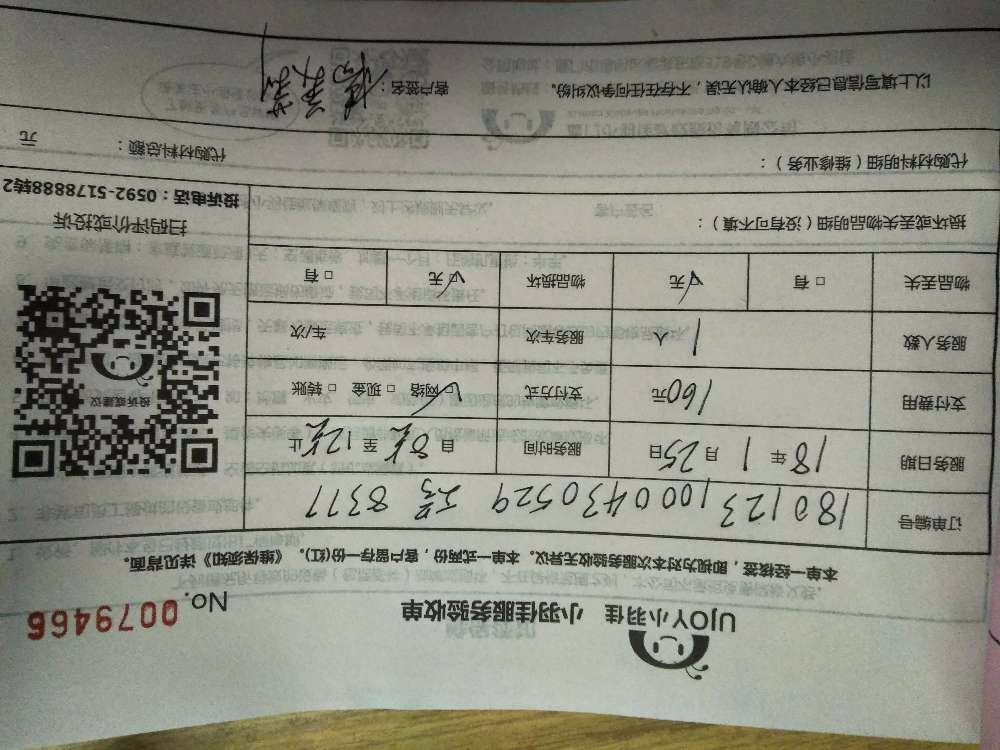 UJOY小羽佳 小羽佳服务验收单 No. 0079466
本单一经核签，即视为对本次服务验收无异议。本单一式两份，客户留存一份(红)。《维保须知》详见背面。
订单编号 180123100043052 9 工号 8377
服务日期 18年1月25日 服务时间 自8点至12点止
支付费用 160元 支付方式 ☑网络 □现金 □转账
服务人数 1人 服务车次 车/次
物品丢失 □有 ☑无 物品损坏 ☑无 □有
投诉或建议
扫码评价或投诉
投诉电话：0592-5178888转2
损坏或丢失物品明细（没有可不填）：
代购材料明细（维修业务）： 代购材料总额： 元
以上填写信息已经本人确认无误，不存在任何争议纠纷。 客户签名：